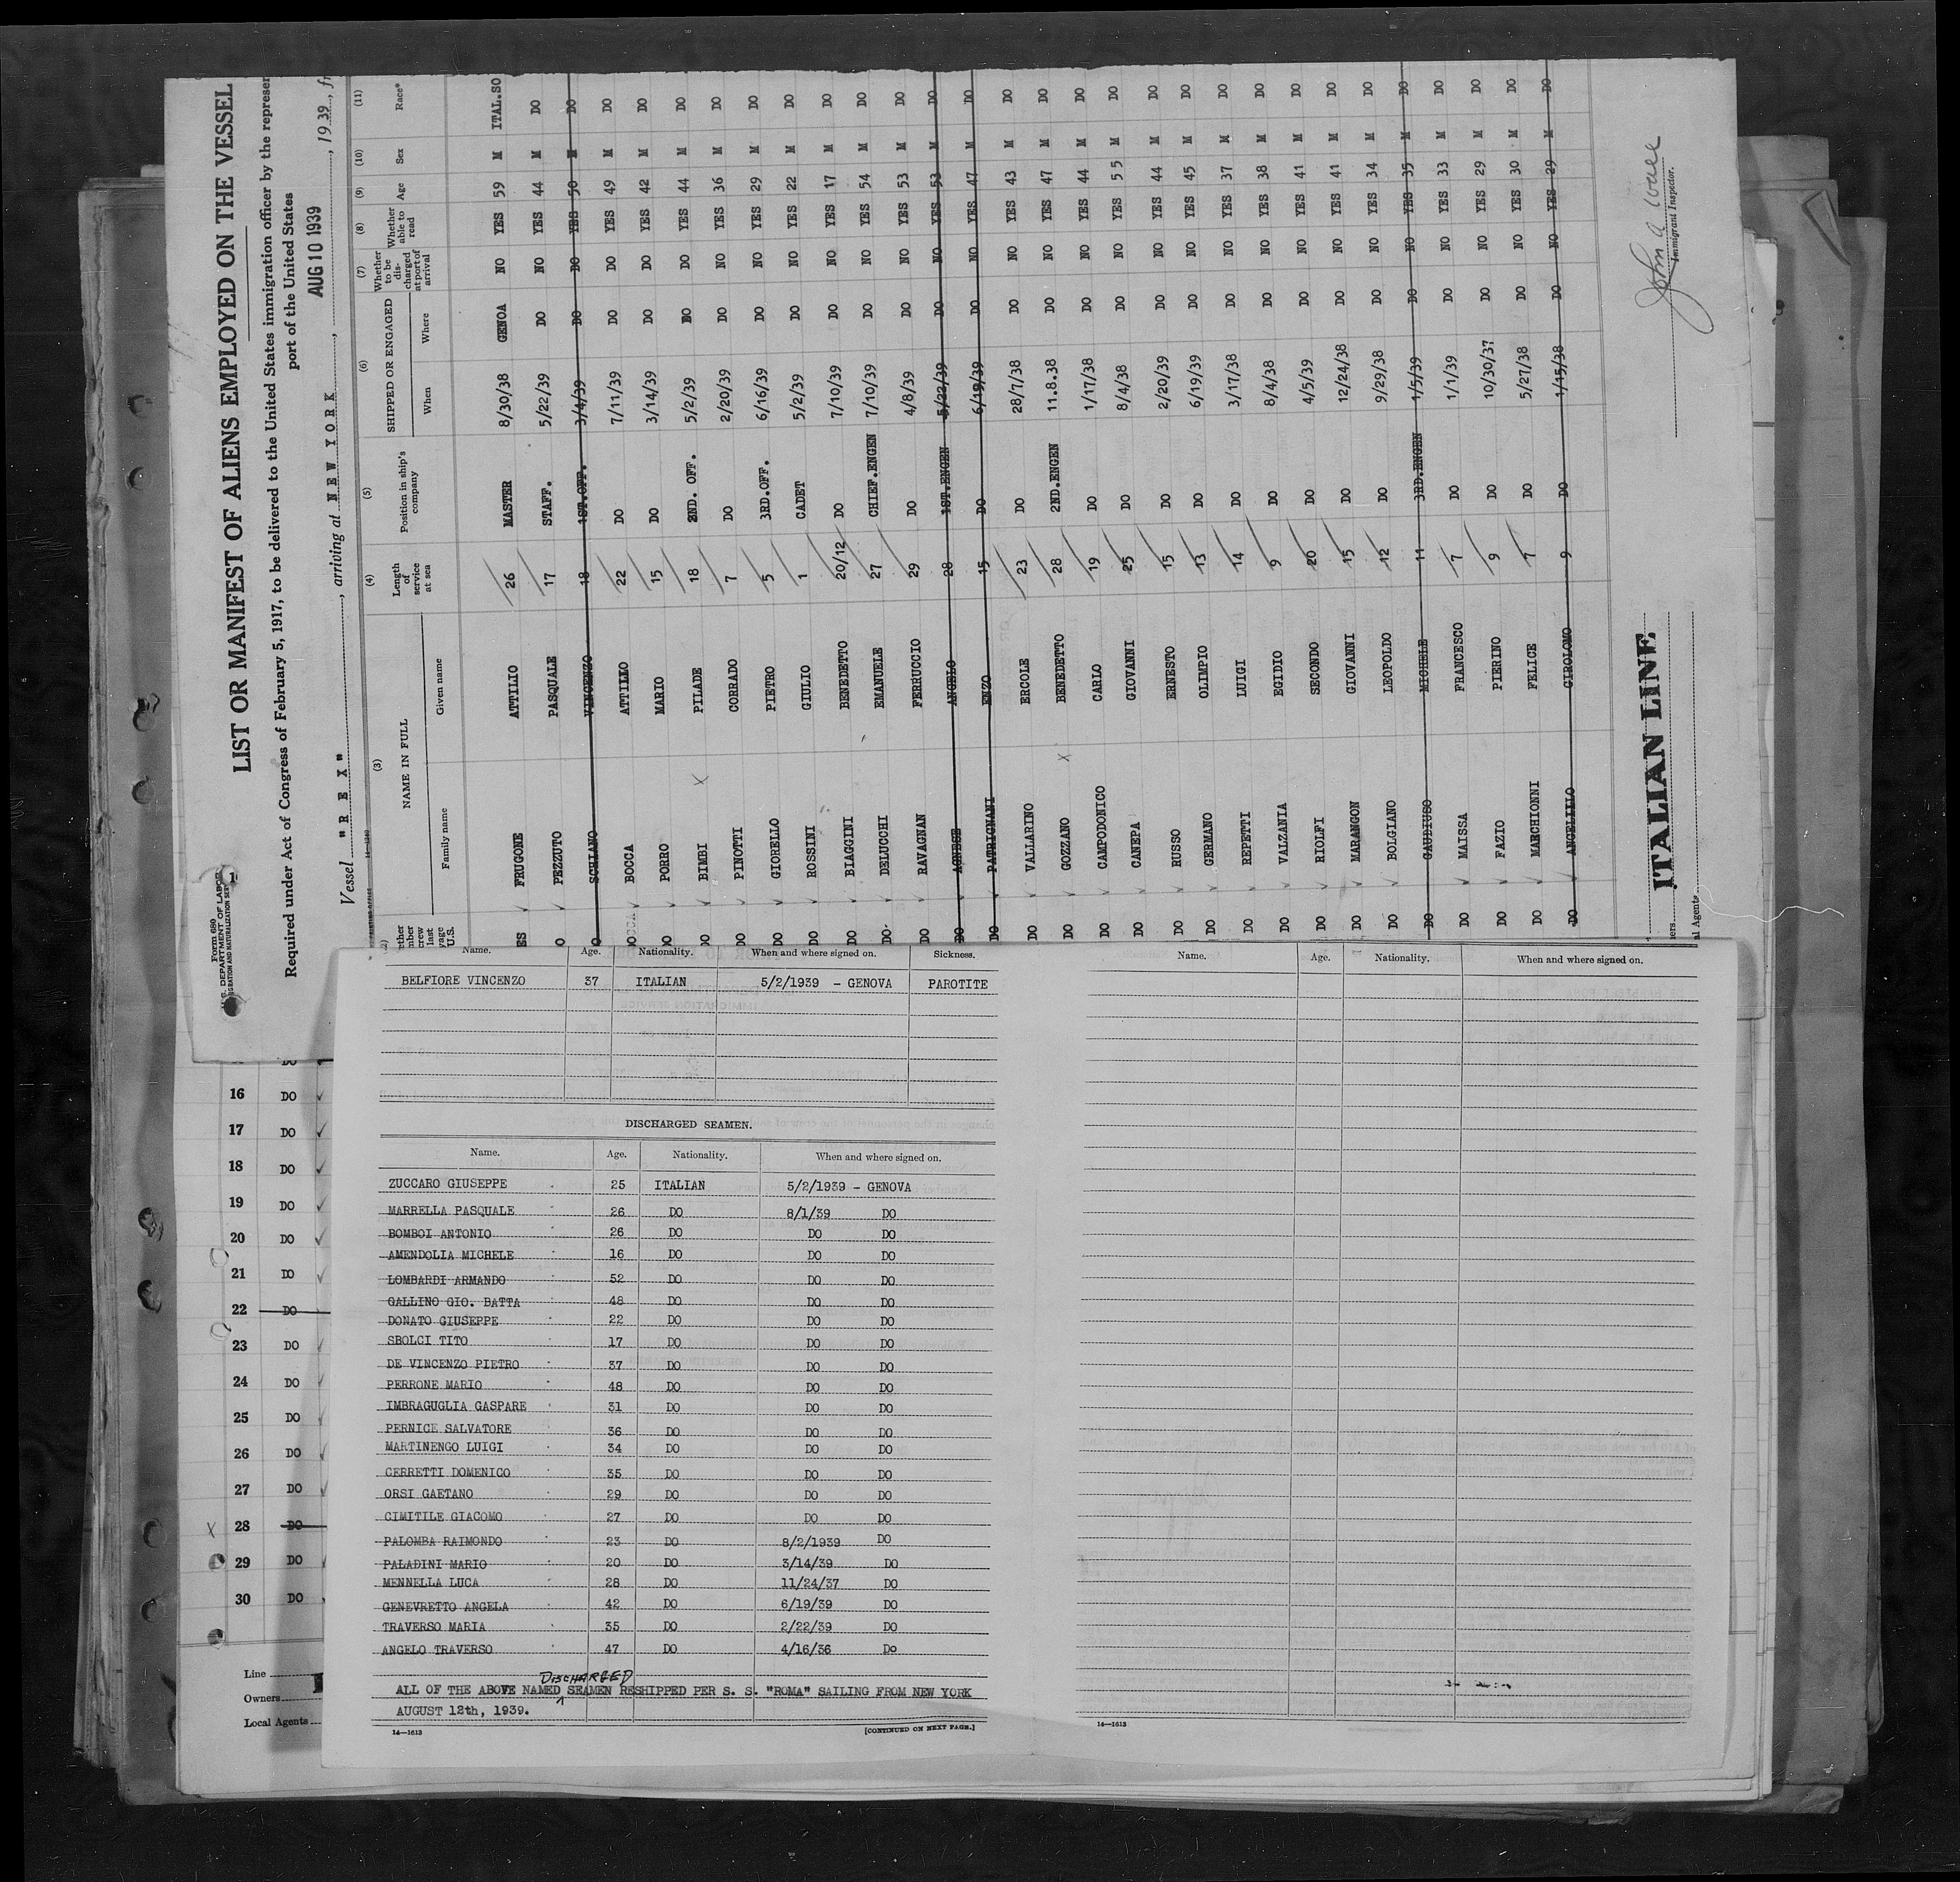 LIST OR MANIFEST OF ALIENS EMPLOYED ON THE VESSEL
Required under Act of Congress of February 5, 1917, to be delivered to the United States immigration officer by the represen
port of the United States
AUG 10 1939
Vessel "R E X", arriving at NEW YORK, 1939, fr
Form 680
U.S. DEPARTMENT OF LABOR
(3) (4) (5) (6) (7) (8) (9) (10) (11)
NAME IN FULL
Family name Given name
Length of service at sea
Position in ship's company
SHIPPED OR ENGAGED
When Where
Whether to be discharged at port of arrival
Whether able to read
Age Sex Race*
FRUGONE ATTILIO 26 MASTER 8/30/38 GENOA NO YES 59 M ITAL.SO
PEZZUTO PASQUALE 17 STAFF. 5/22/39 DO NO YES 44 M DO
SCHIANO VINCENZO 18 1ST.OFF. 3/4/39 DO DO YES 50 M DO
BOCCA ATTILIO 22 DO 7/11/39 DO DO YES 49 M DO
PORRO MARIO 15 DO 3/14/39 DO DO YES 42 M DO
BIMBI PILADE 18 2ND. OFF. 5/2/39 DO DO YES 44 M DO
PINOTTI CORRADO 7 DO 2/20/39 DO NO YES 36 M DO
GIORELLO PIETRO 5 3RD.OFF. 6/16/39 DO NO YES 29 M DO
ROSSINI GIULIO 1 CADET 5/2/39 DO NO YES 22 M DO
BIAGGINI BENEDETTO 20/12 DO 7/10/39 DO NO YES 17 M DO
DELUCCHI EMANUELE 27 CHIEF.ENGEN 7/10/39 DO NO YES 54 M DO
RAVAGNAN FERRUCCIO 29 DO 4/8/39 DO NO YES 53 M DO
AGNESE ANGELO 28 1ST.ENGEN 5/22/39 DO NO YES 53 M DO
PATRIGNANI ENZO 15 DO 6/19/39 DO NO YES 47 M DO
VALLARINO ERCOLE 23 DO 28/7/38 DO NO YES 43 M DO
GOZZANO BENEDETTO 28 2ND.ENGEN 11.8.38 DO NO YES 47 M DO
CAMPODONICO CARLO 19 DO 1/17/38 DO NO YES 44 M DO
CANEPA GIOVANNI 25 DO 8/4/38 DO NO YES 55 M DO
RUSSO ERNESTO 15 DO 2/20/39 DO NO YES 44 M DO
GERMANO OLIMPIO 13 DO 6/19/39 DO NO YES 45 M DO
REPETTI LUIGI 14 DO 3/17/38 DO NO YES 37 M DO
VALZANIA EGIDIO 9 DO 8/4/38 DO NO YES 38 M DO
RIOLFI SECONDO 20 DO 4/5/39 DO NO YES 41 M DO
MARANGON GIOVANNI 15 DO 12/24/38 DO NO YES 41 M DO
BOLGIANO LEOPOLDO 12 DO 9/29/38 DO NO YES 34 M DO
GAUDIUSO MICHELE 11 3RD.ENGEN 1/5/39 DO NO YES 35 M DO
MAISSA FRANCESCO 7 DO 1/1/39 DO NO YES 33 M DO
FAZIO PIERINO 9 DO 10/30/37 DO NO YES 29 M DO
MARCHIONNI FELICE 7 DO 5/27/38 DO NO YES 30 M DO
ANGELILLO GIROLOMO 9 DO 1/15/38 DO NO YES 29 M DO
ITALIAN LINE
Immigrant Inspector.
Name. Age. Nationality. When and where signed on. Sickness.
BELFIORE VINCENZO 37 ITALIAN 5/2/1939 - GENOVA PAROTITE
DISCHARGED SEAMEN.
Name. Age. Nationality. When and where signed on.
ZUCCARO GIUSEPPE 25 ITALIAN 5/2/1939 - GENOVA
MARRELLA PASQUALE 26 DO 8/1/39 DO
BOMBOI ANTONIO 26 DO DO DO
AMENDOLIA MICHELE 16 DO DO DO
LOMBARDI ARMANDO 52 DO DO DO
GALLINO GIO. BATTA 48 DO DO DO
DONATO GIUSEPPE 22 DO DO DO
SBOLCI TITO 17 DO DO DO
DE VINCENZO PIETRO 37 DO DO DO
PERRONE MARIO 48 DO DO DO
IMBRAGUGLIA GASPARE 31 DO DO DO
PERNICE SALVATORE 36 DO DO DO
MARTINENGO LUIGI 34 DO DO DO
CERRETTI DOMENICO 35 DO DO DO
ORSI GAETANO 29 DO DO DO
CIMITILE GIACOMO 27 DO DO DO
PALOMBA RAIMONDO 23 DO 8/2/1939 DO
PALADINI MARIO 20 DO 3/14/39 DO
MENNELLA LUCA 28 DO 11/24/37 DO
GENEVRETTO ANGELA 42 DO 6/19/39 DO
TRAVERSO MARIA 35 DO 2/22/39 DO
ANGELO TRAVERSO 47 DO 4/16/36 Do
DISCHARGED
ALL OF THE ABOVE NAMED SEAMEN RESHIPPED PER S. S. "ROMA" SAILING FROM NEW YORK
AUGUST 12th, 1939.
14—1613 [CONTINUED ON NEXT PAGE.]
Name. Age. Nationality. When and where signed on.
14—1613
16 DO
17 DO
18 DO
19 DO
20 DO
21 DO
22 DO
23 DO
24 DO
25 DO
26 DO
27 DO
28 DO
29 DO
30 DO
Line
Owners
Local Agents